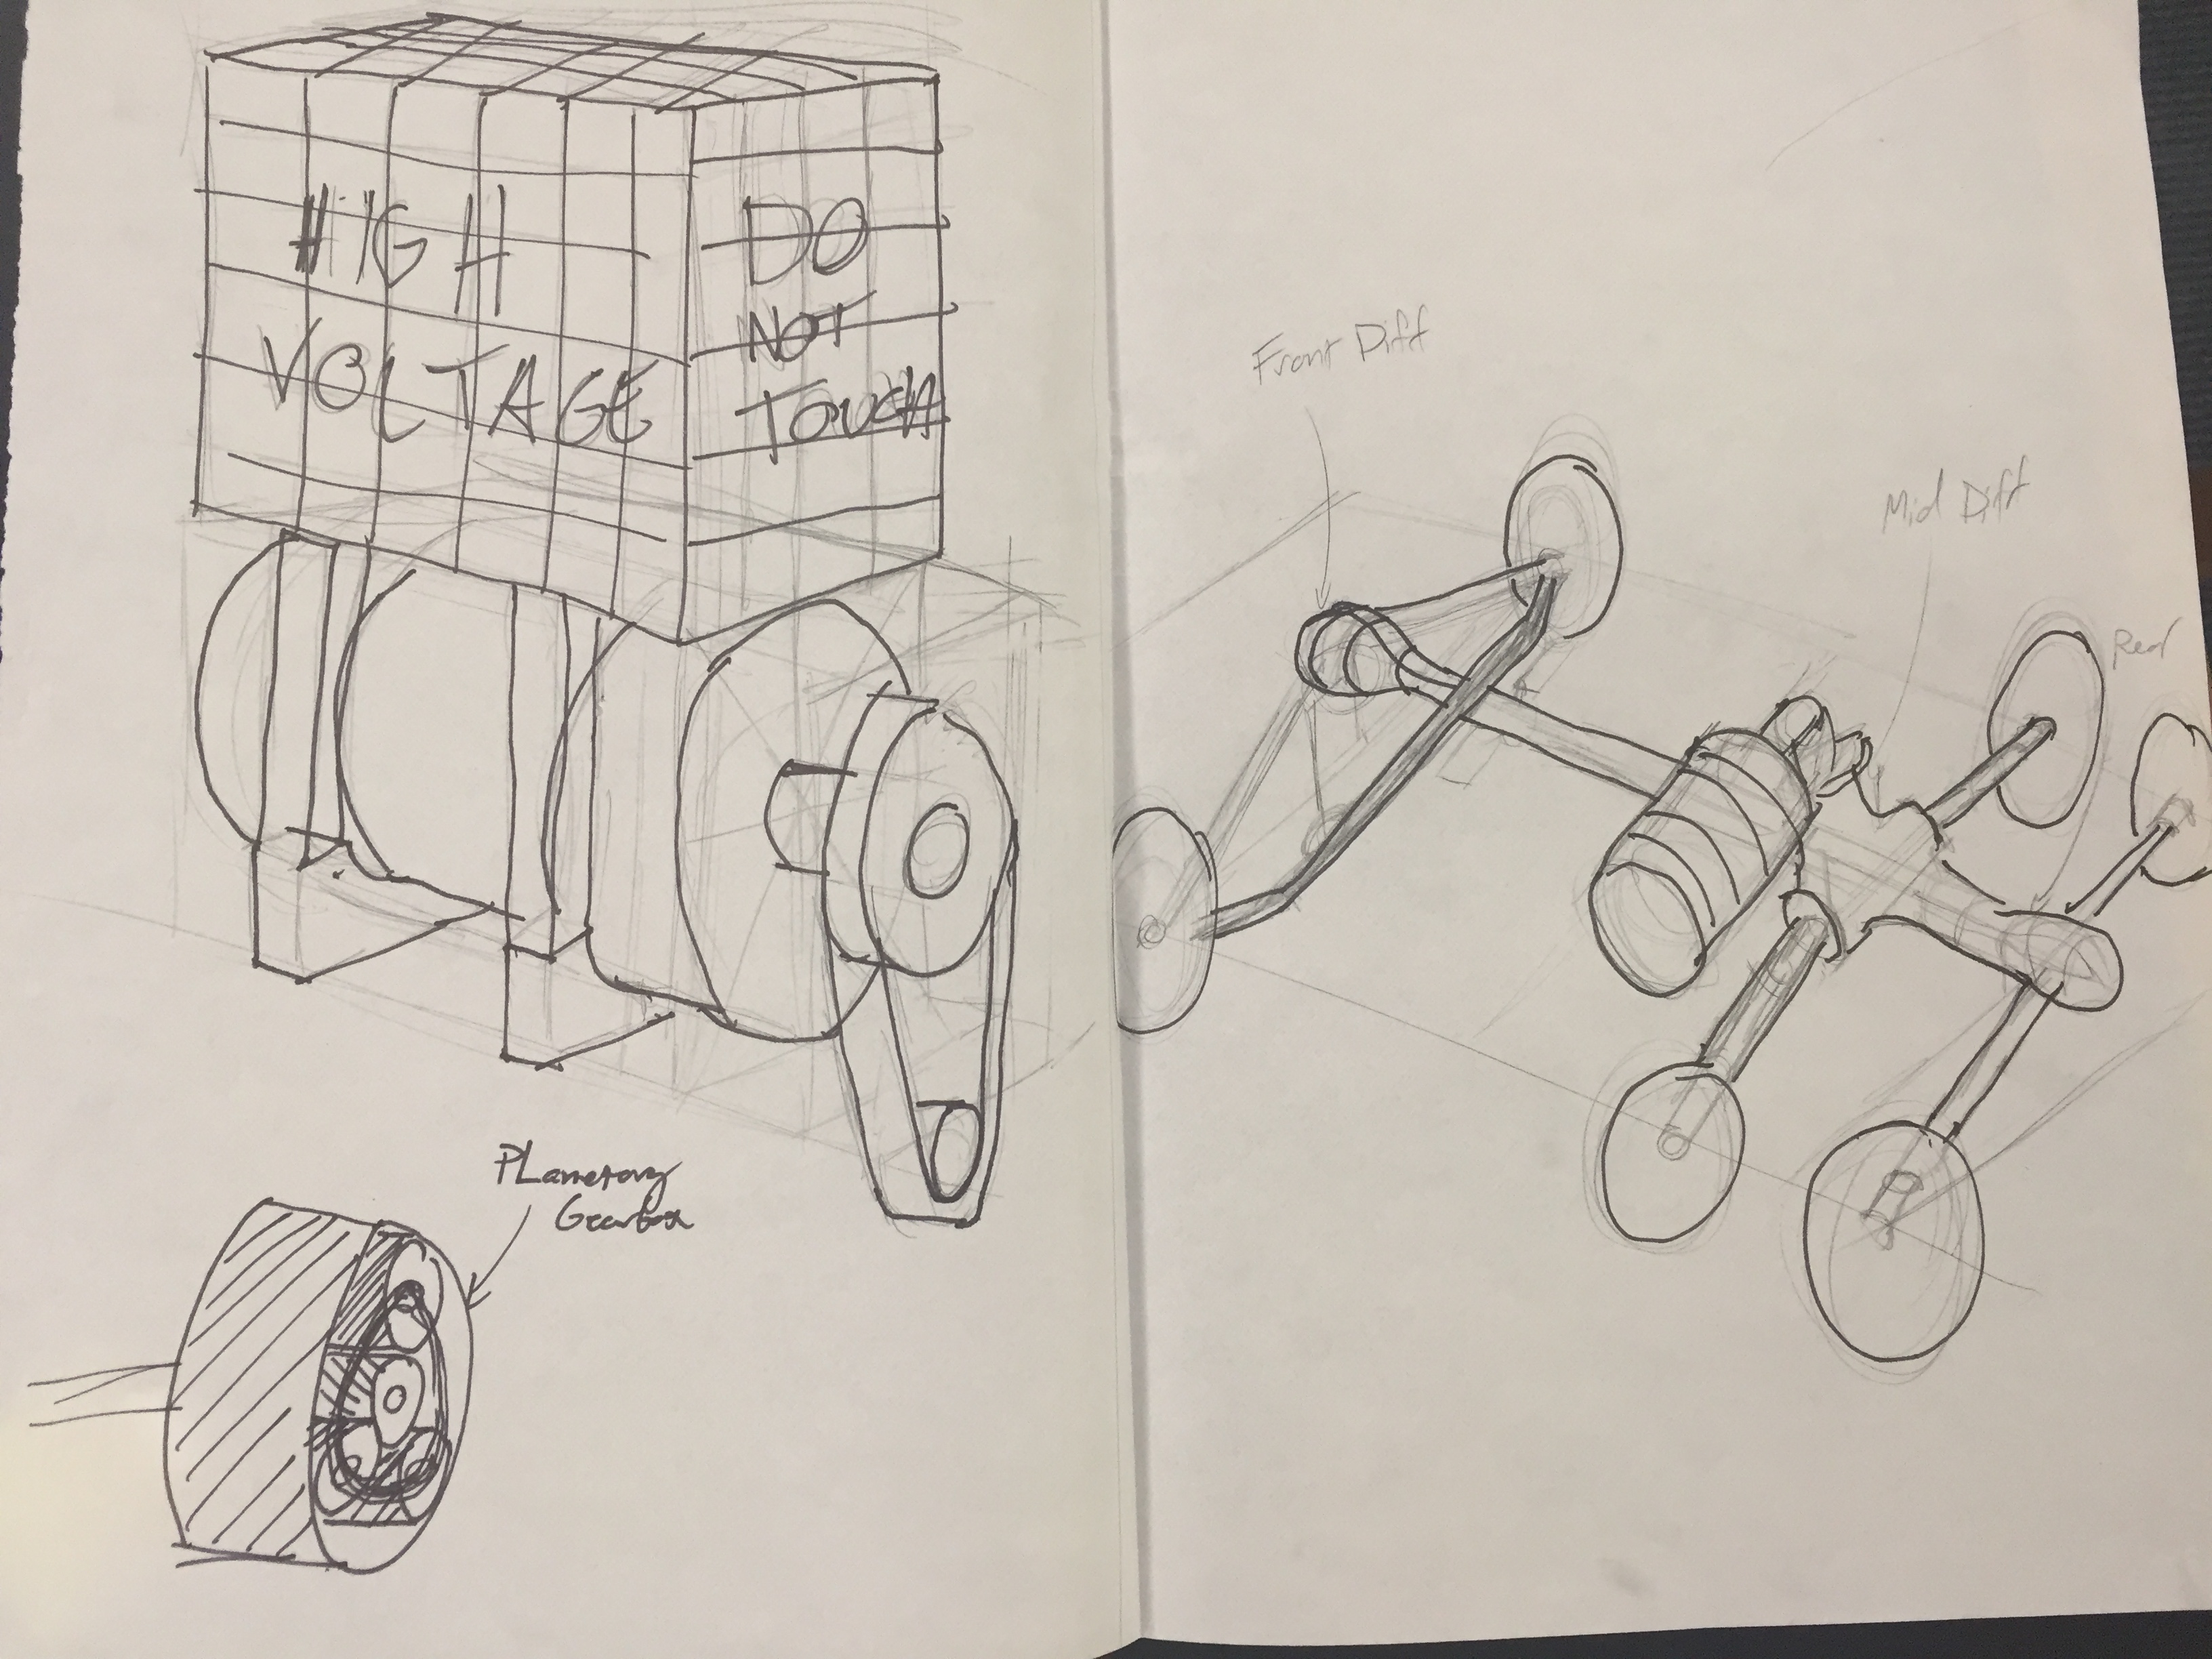 HIGH
VOLTAGE
DO
NOT
TOUCH
PLanetary
Gearbox
Front Diff
Mid Diff